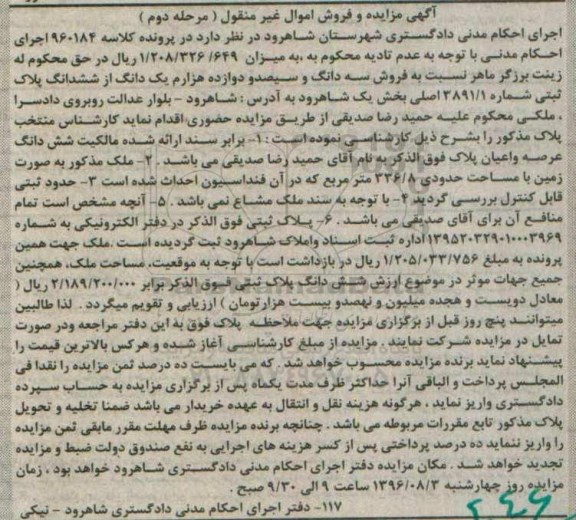 آگهی مزایده و فروش اموال غیر منقول ( مرحله دوم )
اجرای احکام مدنی دادگستری شهرستان شاهرود در نظر دارد در پرونده کلاسه ۹۶۰۱۸۴ اجرای
احکام مدنی با توجه به عدم تادیه محکوم به ،به میزان ۱/۲۰۸/۳۲۶/۶۴۹ ریال در حق محکوم له
زینت برزگر ماهر نسبت به فروش سه دانگ و سیصدو دوازده هزارم یک دانگ از ششدانگ پلاک
ثبتی شماره ۳۸۹۱/۱ اصلی بخش یک شاهرود به آدرس : شاهرود - بلوار عدالت روبروی دادسرا
، ملکی محکوم علیه حمید رضا صدیقی از طریق مزایده حضوری اقدام نماید کارشناس منتخب
پلاک مذکور را بشرح ذیل کارشناسی نموده است : ۱- برابر سند ارائه شده مالکیت شش دانگ
عرصه واعیان پلاک فوق الذکر به نام آقای حمید رضا صدیقی می باشد . ۲- ملک مذکور به صورت
زمین با مساحت حدودی ۳۳۶/۸ متر مربع که در آن فنداسیون احداث شده است ۳- حدود ثبتی
قابل کنترل بررسی گردید ۴- با توجه به سند ملک مشاع نمی باشد . ۵- آنچه مشخص است تمام
منافع آن برای آقای صدیقی می باشد . ۶- پلاک ثبتی فوق الذکر در دفتر الکترونیکی به شماره
۱۳۹۵۲۰۳۲۹۰۱۰۰۰۳۹۶۹ اداره ثبت اسناد واملاک شاهرود ثبت گردیده است .ملک جهت همین
پرونده به مبلغ ۱/۲۰۵/۰۳۳/۷۵۶ ریال در بازداشت است با توجه به موقعیت، مساحت ملک، همچنین
جمیع جهات موثر در موضوع ارزش شش دانگ پلاک ثبتی فوق الذکر برابر ۲/۱۸۹/۲۰۰/۰۰۰ ریال (
معادل دویست و هجده میلیون و نهصدو بیست هزارتومان ) ارزیابی و تقویم میگردد . لذا طالبین
میتوانند پنج روز قبل از برگزاری مزایده جهت ملاحظه پلاک فوق به این دفتر مراجعه ودر صورت
تمایل در مزایده شرکت نمایند . مزایده از مبلغ کارشناسی آغاز شده و هرکس بالاترین قیمت را
پیشنهاد نماید برنده مزایده محسوب خواهد شد . که می بایست ده درصد ثمن مزایده را نقدا فی
المجلس پرداخت و الباقی آنرا حداکثر ظرف مدت یکماه پس از برگزاری مزایده به حساب سپرده
دادگستری واریز نماید ، هرگونه هزینه نقل و انتقال به عهده خریدار می باشد ضمنا تخلیه و تحویل
پلاک مذکور تابع مقررات مربوطه می باشد . چنانچه برنده مزایده ظرف مهلت مقرر مابقی ثمن مزایده
را واریز ننماید ده درصد پرداختی پس از کسر هزینه های اجرایی به نفع صندوق دولت ضبط و مزایده
تجدید خواهد شد . مکان مزایده دفتر اجرای احکام مدنی دادگستری شاهرود خواهد بود ، زمان
مزایده روز چهارشنبه ۱۳۹۶/۰۸/۳ ساعت ۹ الی ۹/۳۰ صبح .
۱۱۷- دفتر اجرای احکام مدنی دادگستری شاهرود - نیکی